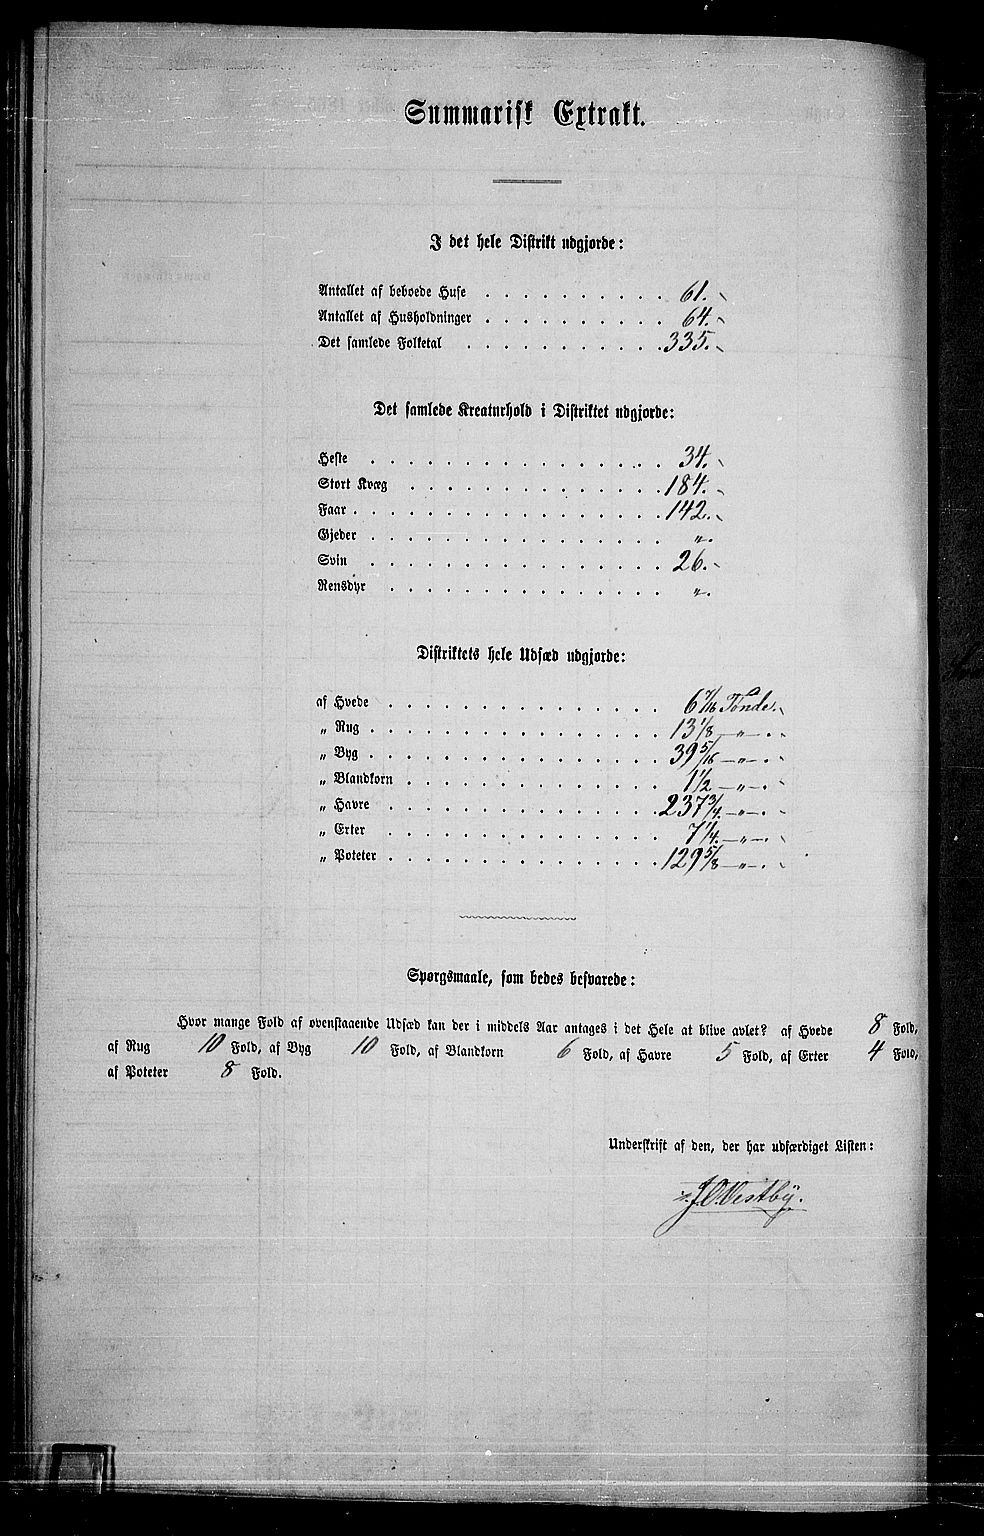 Summarisk Extrakt.
I det hele Distrikt udgjorde:
Antallet af beboede Huse . . . . . . . . . . 61.
Antallet af Husholdninger . . . . . . . . . . 64.
Det samlede Folketal . . . . . . . . . . . 335.
Det samlede Kreaturhold i Distriktet udgjorde:
Heste . . . . . . . . . . . . . . . . 34.
Stort Kvæg . . . . . . . . . . . . . . 184.
Faar . . . . . . . . . . . . . . . . . 142.
Gjeder . . . . . . . . . . . . . . . . „.
Svin . . . . . . . . . . . . . . . . 26.
Rensdyr . . . . . . . . . . . . . . . „.
Distriktets hele Udsæd udgjorde:
af Hvede . . . . . . . . . . . . . . . 6 7/16 Tønde.
„ Rug . . . . . . . . . . . . . . . . 13 1/8 — „ — .
„ Byg . . . . . . . . . . . . . . . . 39 5/16 — „ — .
„ Blandkorn . . . . . . . . . . . . . . 1 1/2 — „ — .
„ Havre . . . . . . . . . . . . . . . 237 3/4. — „ — .
„ Erter . . . . . . . . . . . . . . . 7 1/4. — „ — .
„ Poteter . . . . . . . . . . . . . . . 129 5/8 — „ — .
Spørgsmaale, som bedes besvarede:
Hvor mange Fold af ovenstaaende Udsæd kan der i middels Aar antages i det Hele at blive avlet? af Hvede 8 Fold,
af Rug 10 Fold, af Byg 10 Fold, af Blandkorn 6 Fold, af Havre 5 Fold, af Erter 4 Fold,
af Poteter 8 Fold.
Underskrift af den, der har udfærdiget Listen:
J. O. Westby.